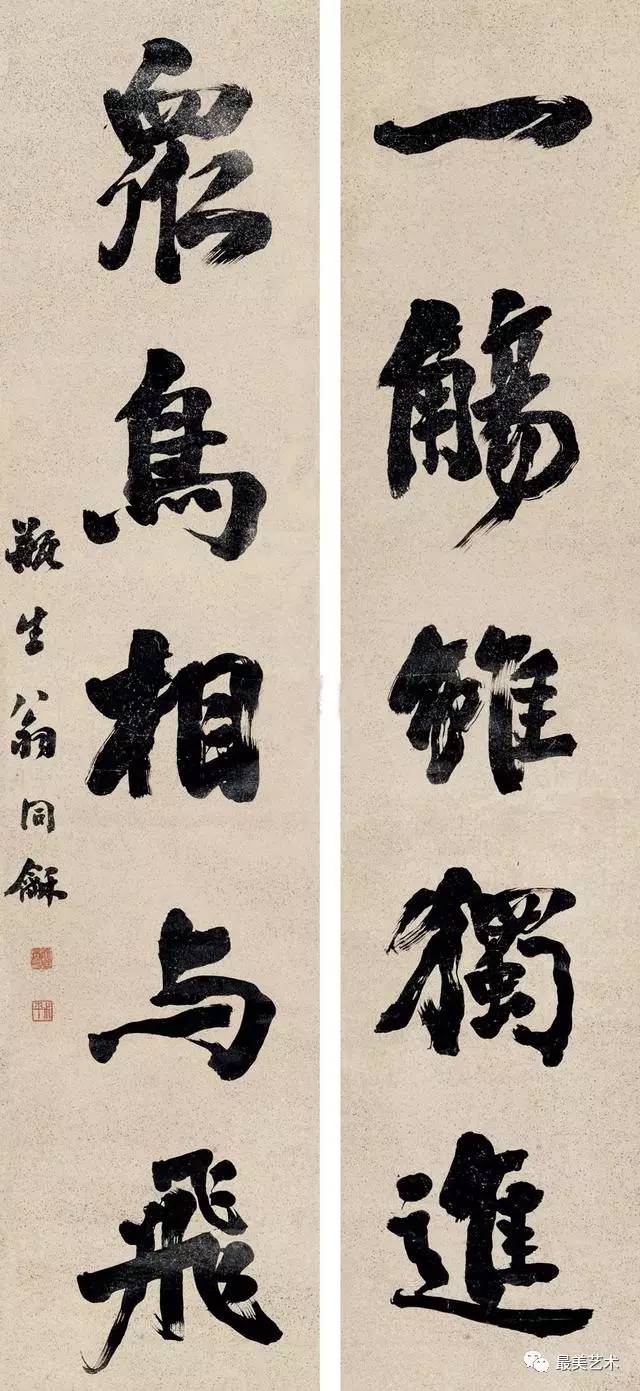 一觴雖獨進
衆鳥相与飛
瓶生翁同龢
最美艺术